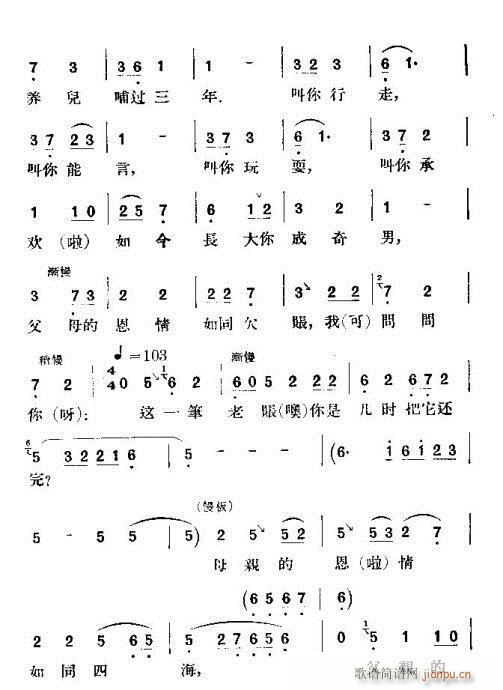 7 3 3 6 1 1 - 3 2 3 6 1·
养兒 哺过三 年. 叫你行 走,
3 7 2 3 1 - 3 7 2 3 6 1· 3 7 2
叫你能 言, 叫你玩 耍, 叫你承
1 1 0 2 5 7 6 1 2 3 2 1 -
欢(啦) 如今 長大你 成奇 男,
渐慢
3 7 3 2 2 2 2 7 3 2 2 2 7 2
父 母的 恩情 如同欠 賬,我(可)問問
稍慢 ♩=103 渐慢
7 2 4/4 0 5 6 6 0 5 2 2 2 1 6 2 6 7 2
你(呀): 这一筆 老 賬(噢)你是 儿时 把它还
5 3 2 2 2 1 6 5 - - - (6· 1 6 1 2 3
完?
(慢板)
5 - 5 5 5 5·) 2 5 5 2 5 - 4 5 2
母親的 恩(啦)情
(6 5 6 7 6·)
2 2 5 2 6 5 5 2 7 6 5 6 5 - 0 5 1 1 0
如同四 海, 父親的
歌谱简谱网
jianpu.cn